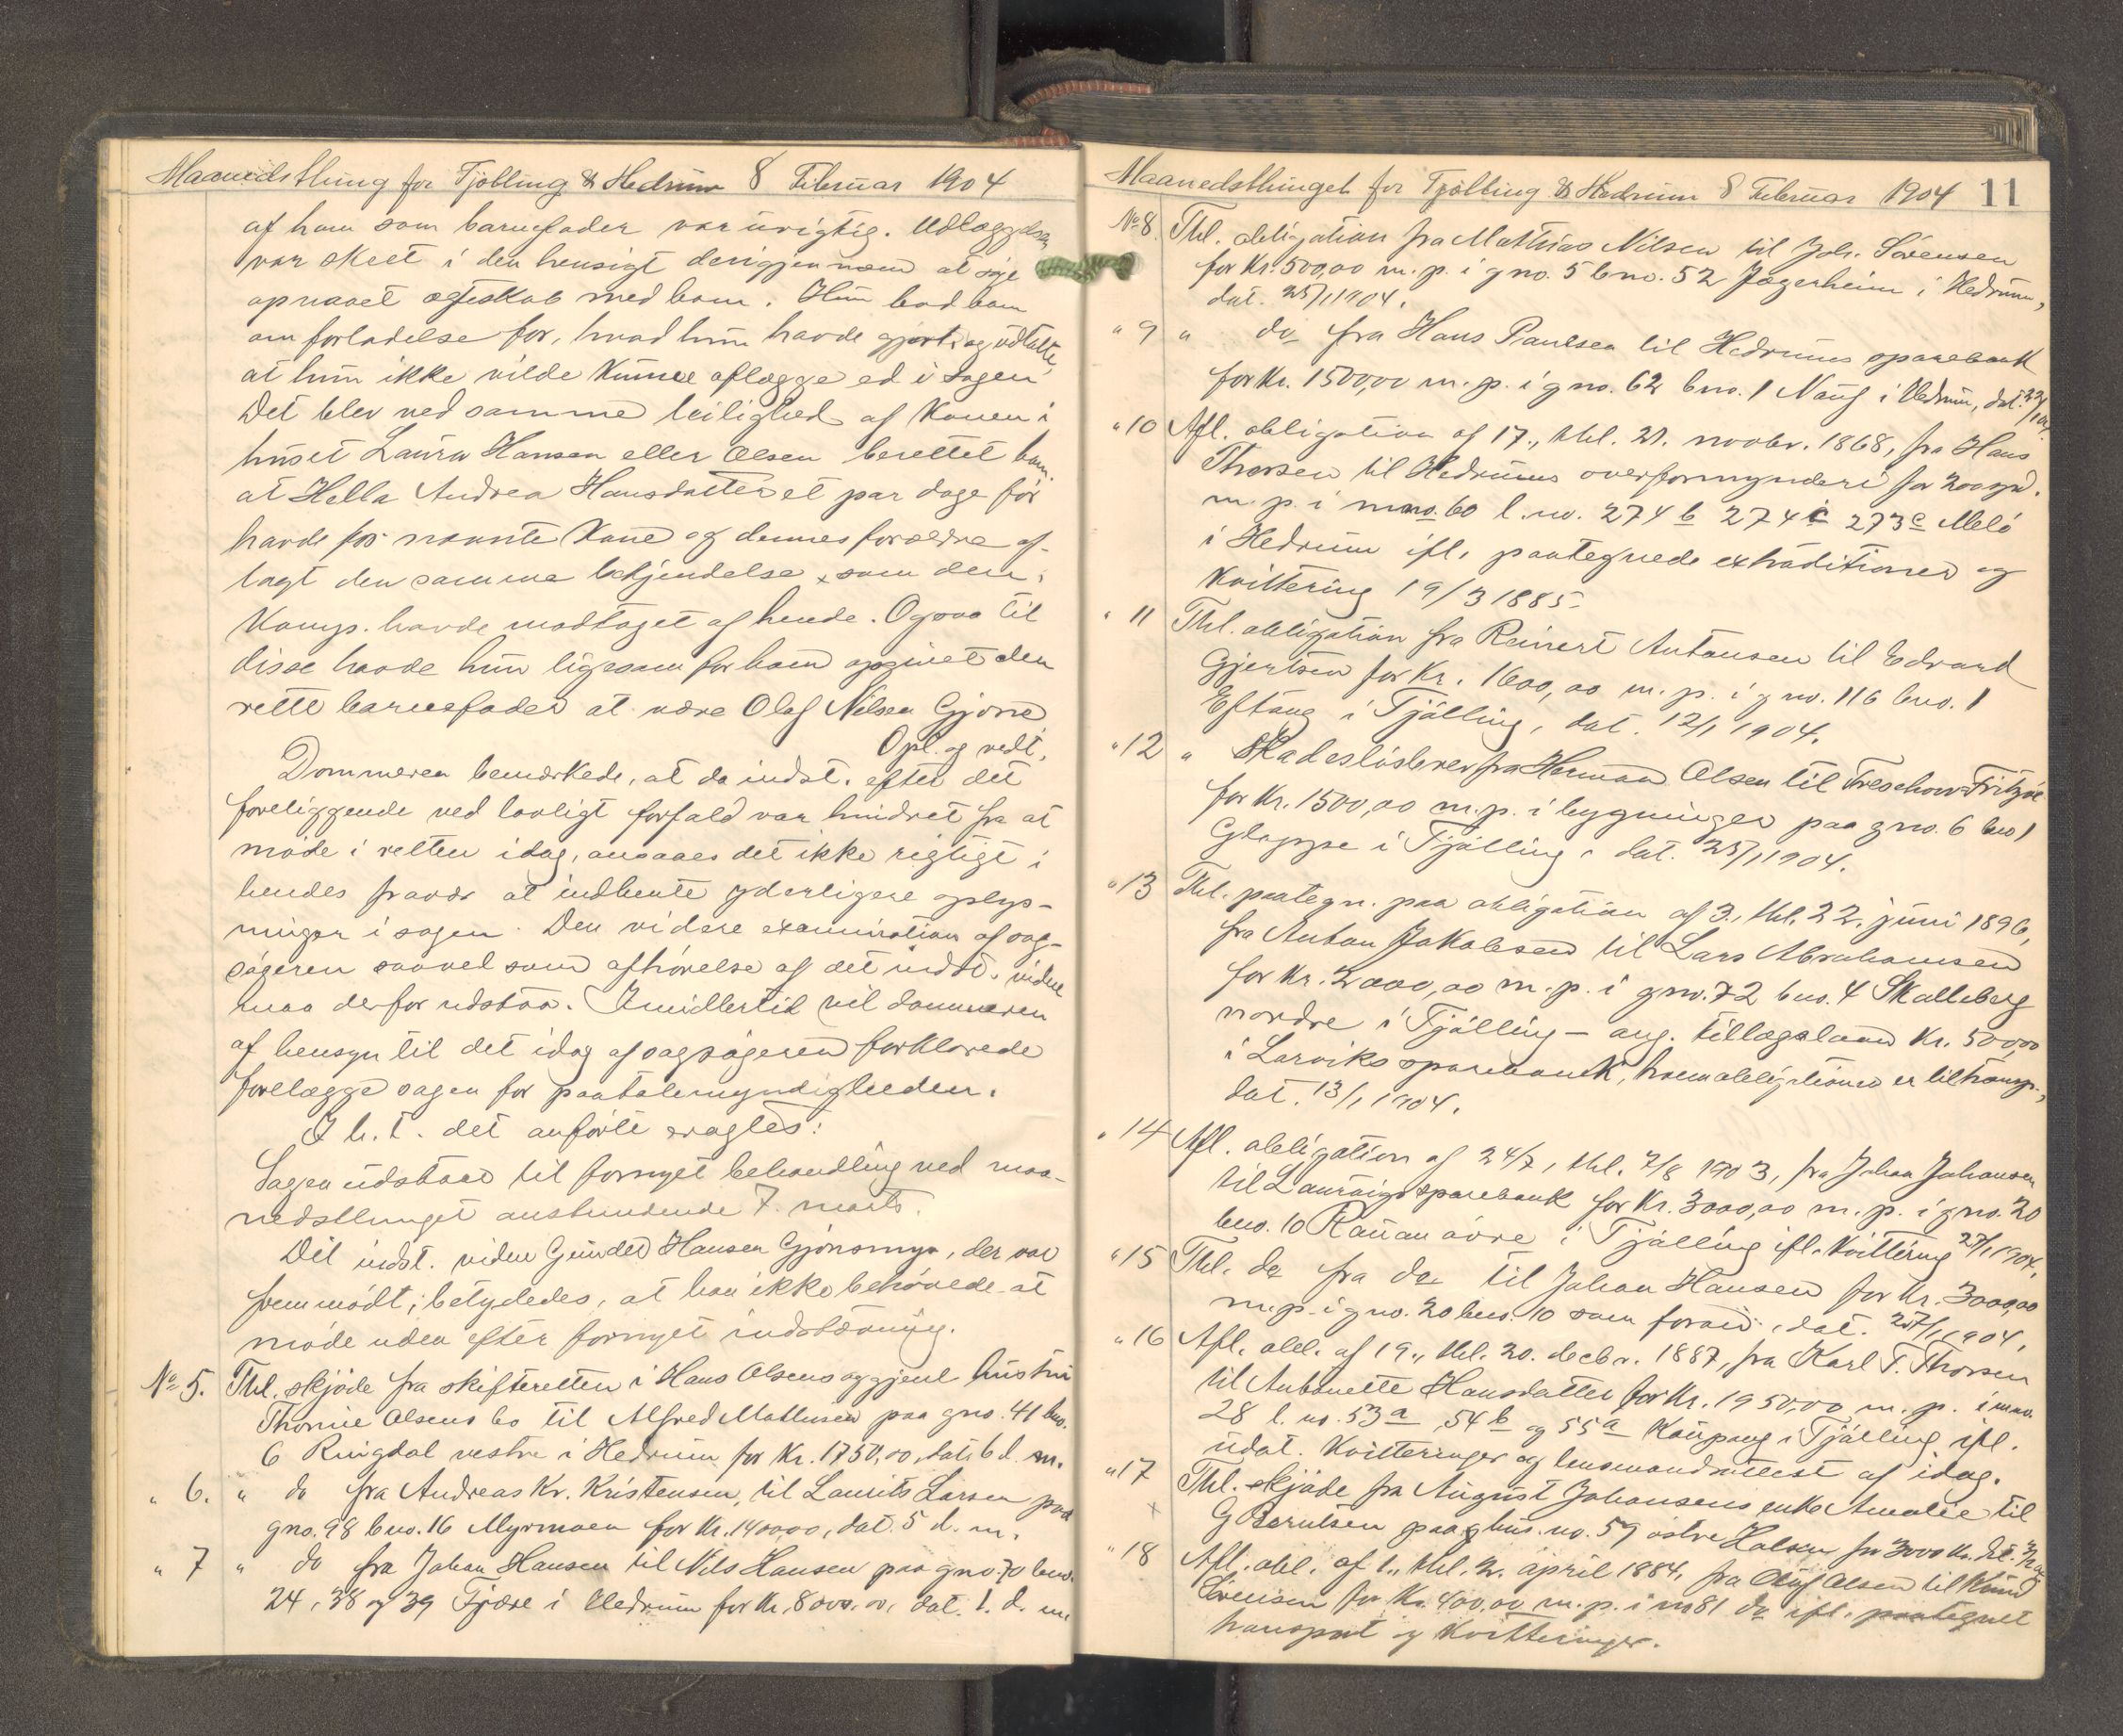 Maanedsthing for Tjølling & Hedrum 8 Februar 1904
af ham som barnefader var urigtig. Udlæggelsen
var skeet i den hensigt derigjennem at søge
opnaaet ægteskab med ham. Hun bad ham
om forladelse for, hvad hun havde gjort og udtalte,
at hun ikke vilde kunne aflægge ed i sagen
Det blev ved samme leilighed af konen i
huset Laura Hansen eller Olsen berettet ham,
at Hella Andrea Hansdatter et par dage før
havde for nævnte kone og dennes forældre af-
lagt den samme bekjendelse, som den,
Komp. havde modtaget af hende. Ogsaa til
disse havde hun ligesom for ham opgivet den
rette barnefader at være Olaf Nilsen Gjone
Opl. og vedt.
Dommeren bemærkede, at da indst. efter det
foreliggende ved lovligt forfald var hindret fra at
møde i retten idag, ansaaes det ikke rigtigt i
hendes fravær at indhente yderligere oplys-
ninger i sagen. Den videre examination af sag-
søgeren saavel som afhørelse af det indst. vidne
maa derfor udstaa. Imidlertid vil dommeren
af hensyn til det idag af sagsøgeren forklarede
forelægge sagen for paatalemyndigheden.
I h. t. det anførte eragtes:
Sagen udstaar til fornyet behandling ved maa-
nedsthinget anstundende 7. marts.
Det indst. vidne Gunder Hansen Gjønsmyr, der var
fremmødt, betydedes, at han ikke behøvede at
møde uden efter fornyet indstævning.
No 5. Thl. skjøde fra skifteretten i Hans Olsens og gjenl. hustru
Thorine Olsens bo til Alfred Mathisen paa gno. 41 bno.
6 Ringdal vestre i Hedrum for Kr. 1750,00, dat. 6 d. m.
" 6. " do fra Andreas Kr. Kristensen, til Laurits Larsen paa
gno. 98 bno. 16 Myrmoen for Kr. 1400,00, dat. 5 d. m.
" 7 " do fra Johan Hansen til Nils Hansen paa gno. 70 bno.
24, 38 og 39 Fjære i Hedrum for Kr. 8000,00, dat. 1. d. m.
Maanedsthinget for Tjølling & Hedrum 8 Februar 1904 11
No 8. Thl. obligation fra Mathias Nilsen til Joh. Sørensen
for Kr. 500,00 m. p. i gno. 5 bno. 52 Jægerheim i Hedrum,
dat. 25/1 1904.
" 9 " do fra Hans Paulsen til Hedrums sparebank
for Kr. 1500,00 m. p. i gno. 62 bno. 1 Nauf i Hedrum, dat.
" 10 Afl. obligation af 17., thl. 21. novbr. 1868, fra Hans
Thorsen til Hedrums overformynderi for 200 spd.
m. p. i mno. 60 l. no. 274 b 274 c 273 c Melø
i Hedrum ifl. paategnede extraditioner og
kvittering 19/3 1885.
" 11 Thl. obligation fra Reinert Antonsen til Edvard
Gjertsen for Kr. 1600,00 m. p. i gno. 116 bno. 1
Eftang i Tjølling, dat. 12/1 1904.
" 12 " Skadesløsbrev fra Herman Olsen til Treschow-Fritzøe
for Kr. 1500,00 m. p. i bygninger paa gno. 6 bno 1
Gloppe i Tjølling, dat. 25/1 1904.
" 13 Thl. paategn. paa obligation af 3., thl. 22. juni 1896,
fra Anton Jakobsen til Lars Abrahamsen
for Kr. 2000,00 m. p. i gno. 72 bno. 4 Skalleberg
nordre i Tjølling – ang. tillægslaan Kr. 500,00
i Larviks sparebank, hvem obligationen er tiltransp.,
dat. 13/1 1904.
" 14 Afl. obligation af 24/7, thl. 7/8 1903, fra Johan Johansen
til Laurvigs sparebank for Kr. 3000,00 m. p. i gno. 20
bno. 10 Rauan øvre i Tjølling ifl. kvittering 27/1 1904.
" 15 Thl. do fra do til Johan Hansen for Kr. 3000,00
m. p. i gno. 20 bno. 10 som foran, dat. 27/1 1904.
" 16 Afl. obl. af 19., thl. 20. decbr. 1887, fra Karl T. Thorsen
til Antonette Hansdatter for Kr. 1950,00 m. p. i mno.
28 l. no. 53 a 54 b og 55 a Kaupang i Tjølling, ifl.
udat. kvitteringer og lensmandsattest af idag.
" 17 Thl. skjøde fra August Johansens enke Amalie til
x G Berntsen paa hus no. 59 østre Halsen for 3000 Kr. dat.
" 18 Afl. obl. af 1., thl. 2. april 1884, fra Oluf Olsen til Knud
Sørensen for Kr. 400,00 m. p. i no 81 do ifl. paategnet
transport og kvitteringer.